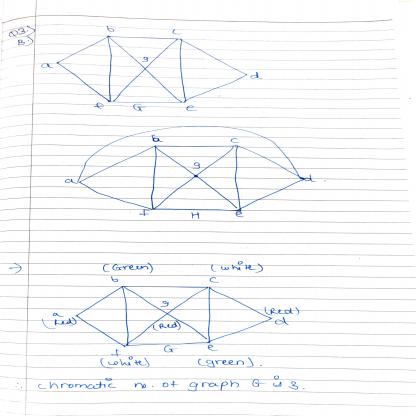 Q3.)
B.)
b c
g
a d
f G e
b c
g
a d.
f H e
→ (Green) (white)
b c
g
a (Red) (Red) (Red) d
f G e
(white) (green).
∴ chromatic no. of graph G is 3.